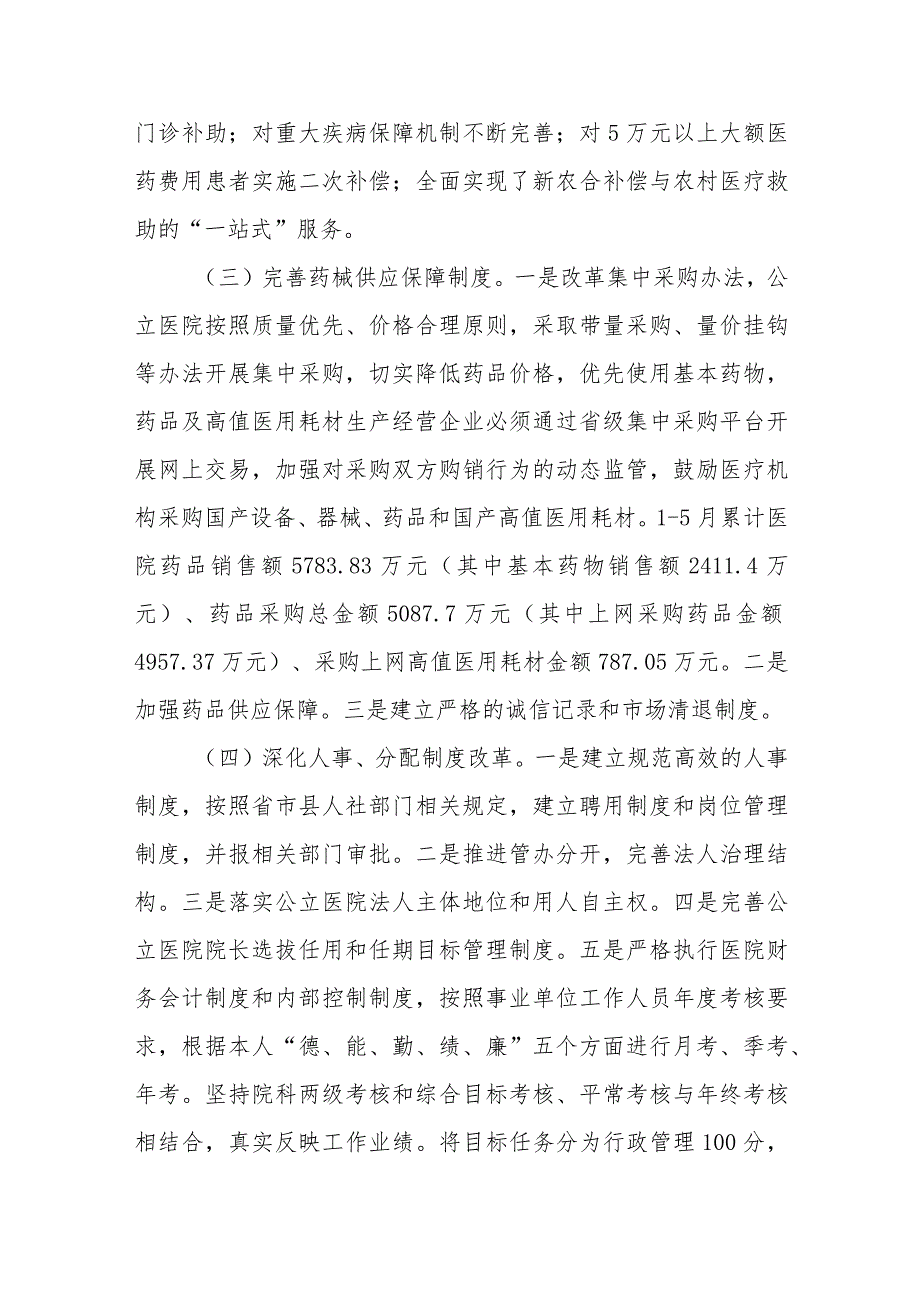 门诊补助；对重大疾病保障机制不断完善；对 5 万元以上大额医
药费用患者实施二次补偿；全面实现了新农合补偿与农村医疗救
助的“一站式”服务。
（三）完善药械供应保障制度。一是改革集中采购办法，公
立医院按照质量优先、价格合理原则，采取带量采购、量价挂钩
等办法开展集中采购，切实降低药品价格，优先使用基本药物，
药品及高值医用耗材生产经营企业必须通过省级集中采购平台开
展网上交易，加强对采购双方购销行为的动态监管，鼓励医疗机
构采购国产设备、器械、药品和国产高值医用耗材。1-5 月累计医
院药品销售额 5783.83 万元（其中基本药物销售额 2411.4 万
元）、药品采购总金额 5087.7 万元（其中上网采购药品金额
4957.37 万元）、采购上网高值医用耗材金额 787.05 万元。二是
加强药品供应保障。三是建立严格的诚信记录和市场清退制度。
（四）深化人事、分配制度改革。一是建立规范高效的人事
制度，按照省市县人社部门相关规定，建立聘用制度和岗位管理
制度，并报相关部门审批。二是推进管办分开，完善法人治理结
构。三是落实公立医院法人主体地位和用人自主权。四是完善公
立医院院长选拔任用和任期目标管理制度。五是严格执行医院财
务会计制度和内部控制制度，按照事业单位工作人员年度考核要
求，根据本人“德、能、勤、绩、廉”五个方面进行月考、季考、
年考。坚持院科两级考核和综合目标考核、平常考核与年终考核
相结合，真实反映工作业绩。将目标任务分为行政管理 100 分，